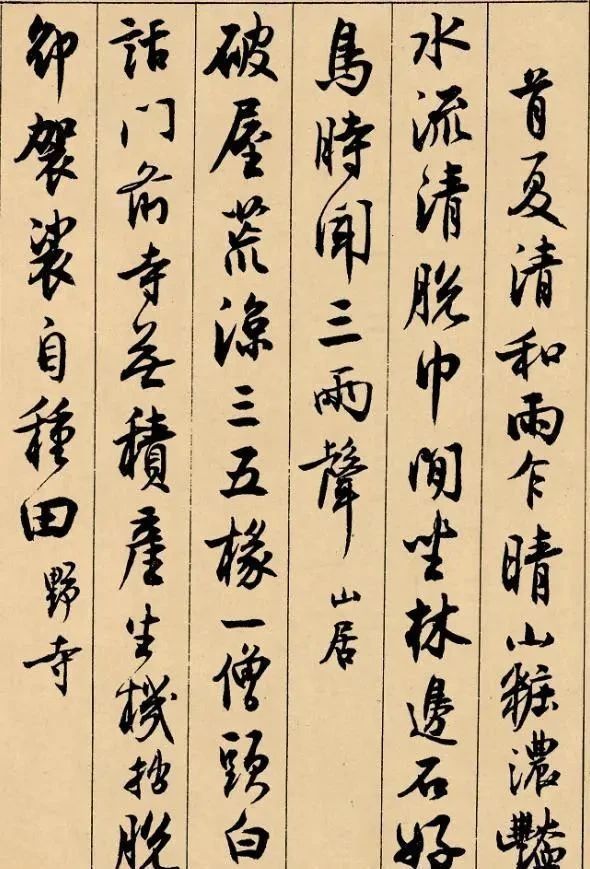 首夏清和雨乍晴山粧濃豔
水流清脫巾閒坐林邊石好
鳥時聞三兩聲 山居
破屋荒涼三五椽一僧頭白
話門前寺無積產生機拙脫
卸袈裟自種田 野寺